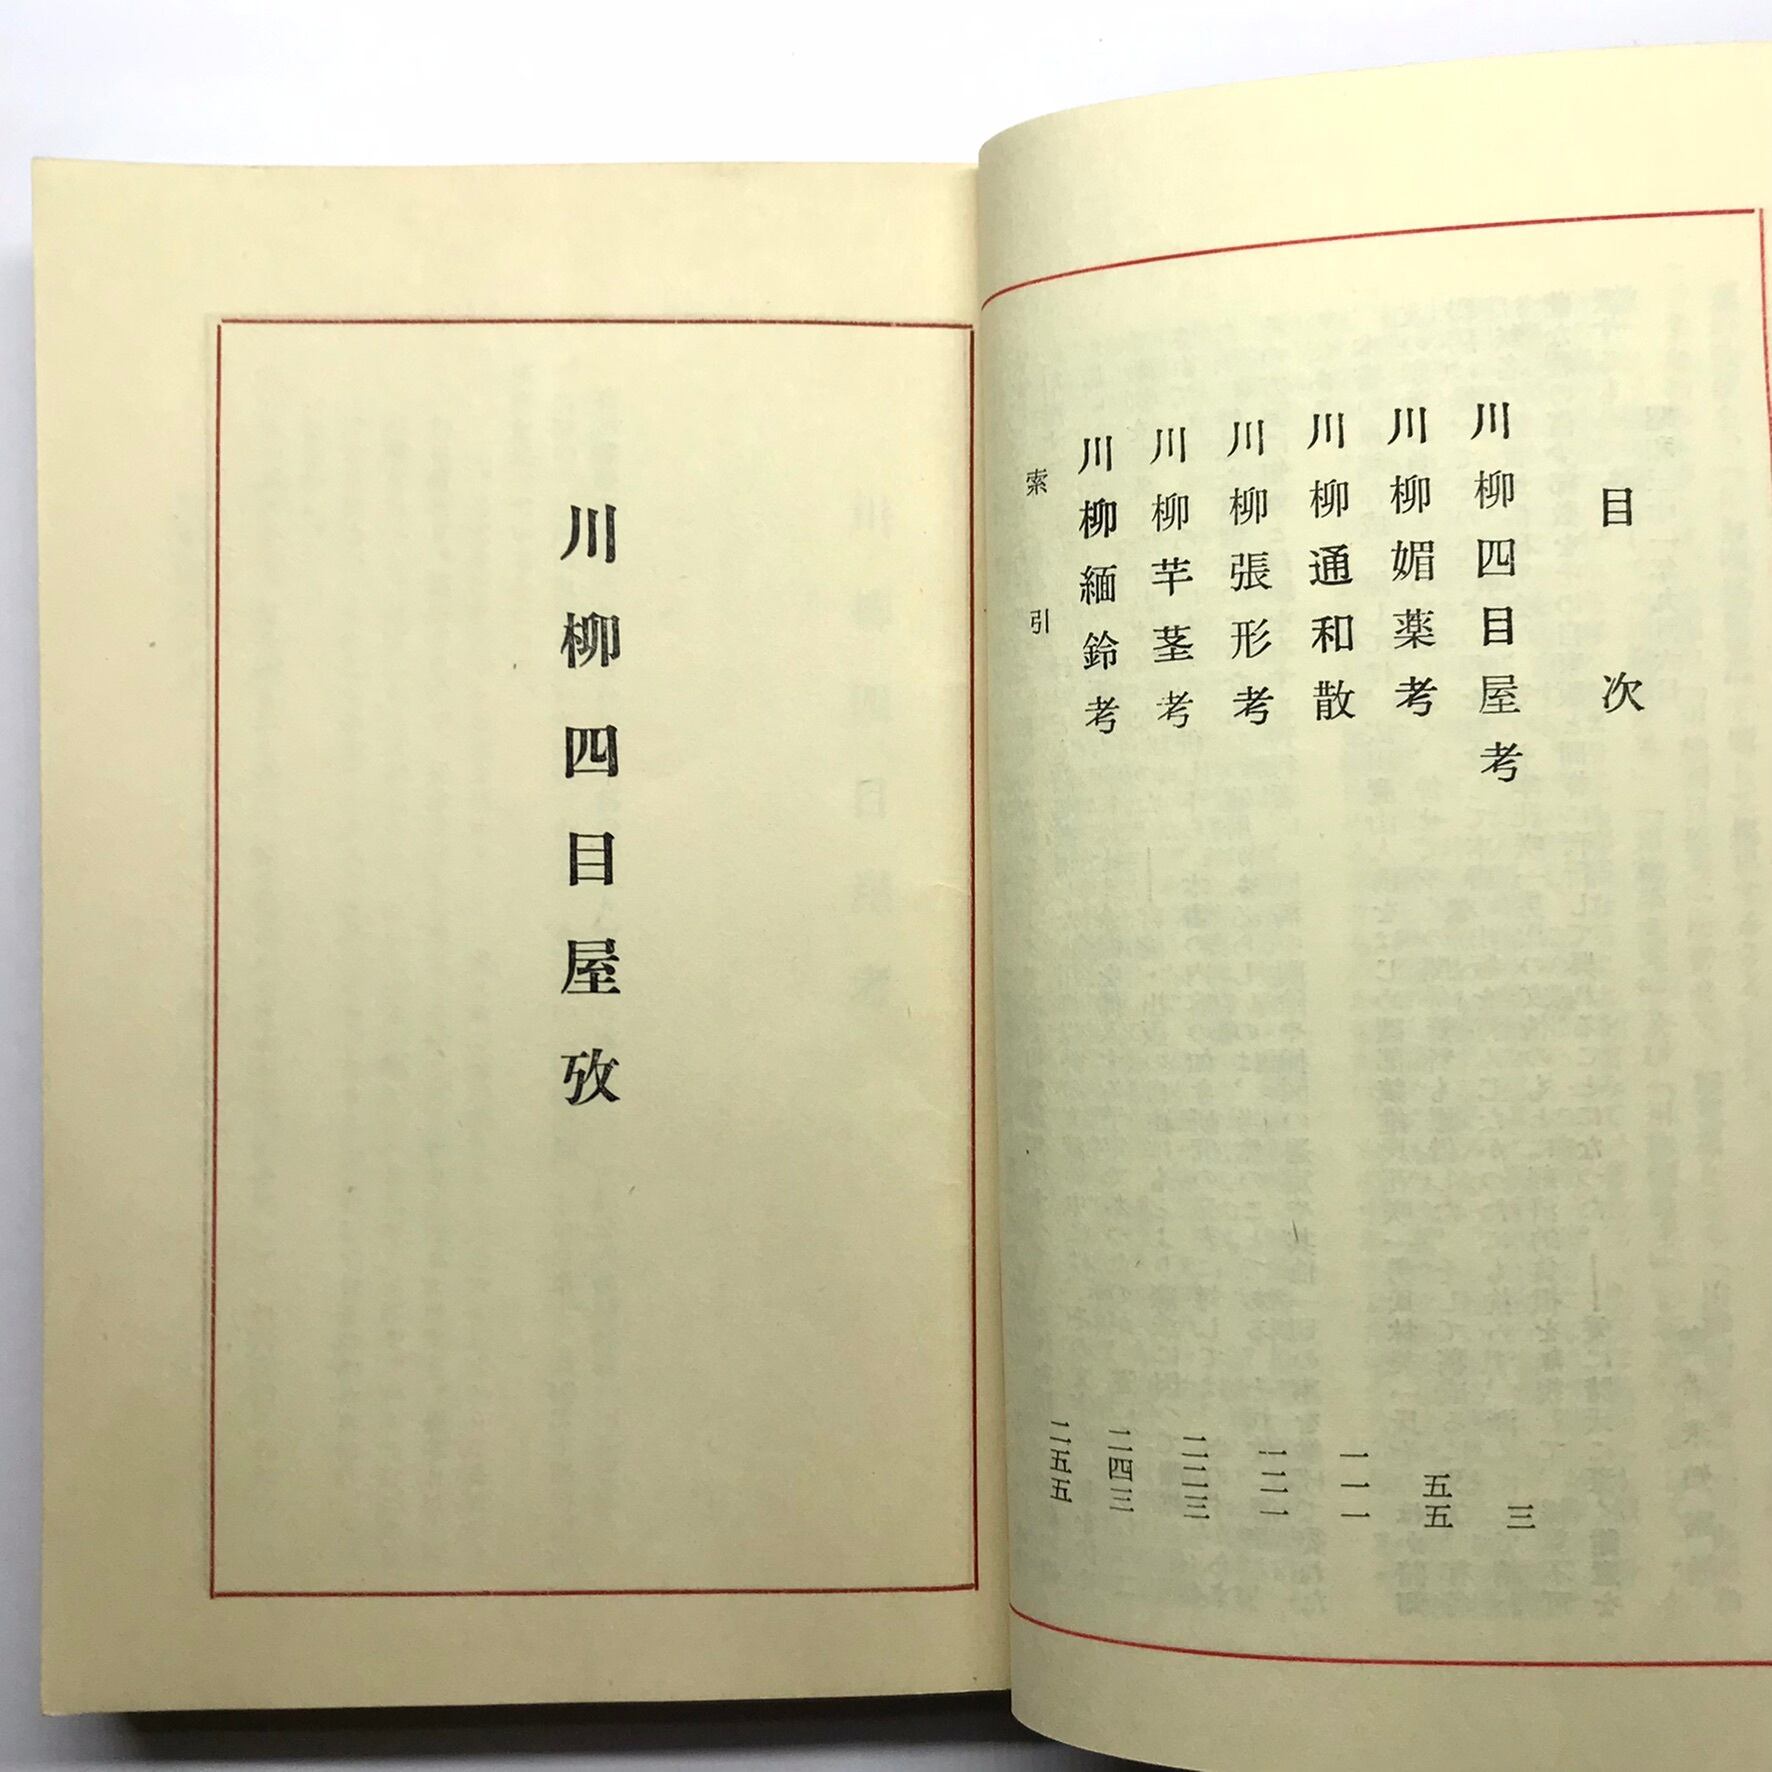 目次
川柳四目屋考 三
川柳媚薬考 五五
川柳通和散 一一一
川柳張形考 一二一
川柳芋茎考 二二三
川柳緬鈴考 二四三
索引 二五五
川柳四目屋攷